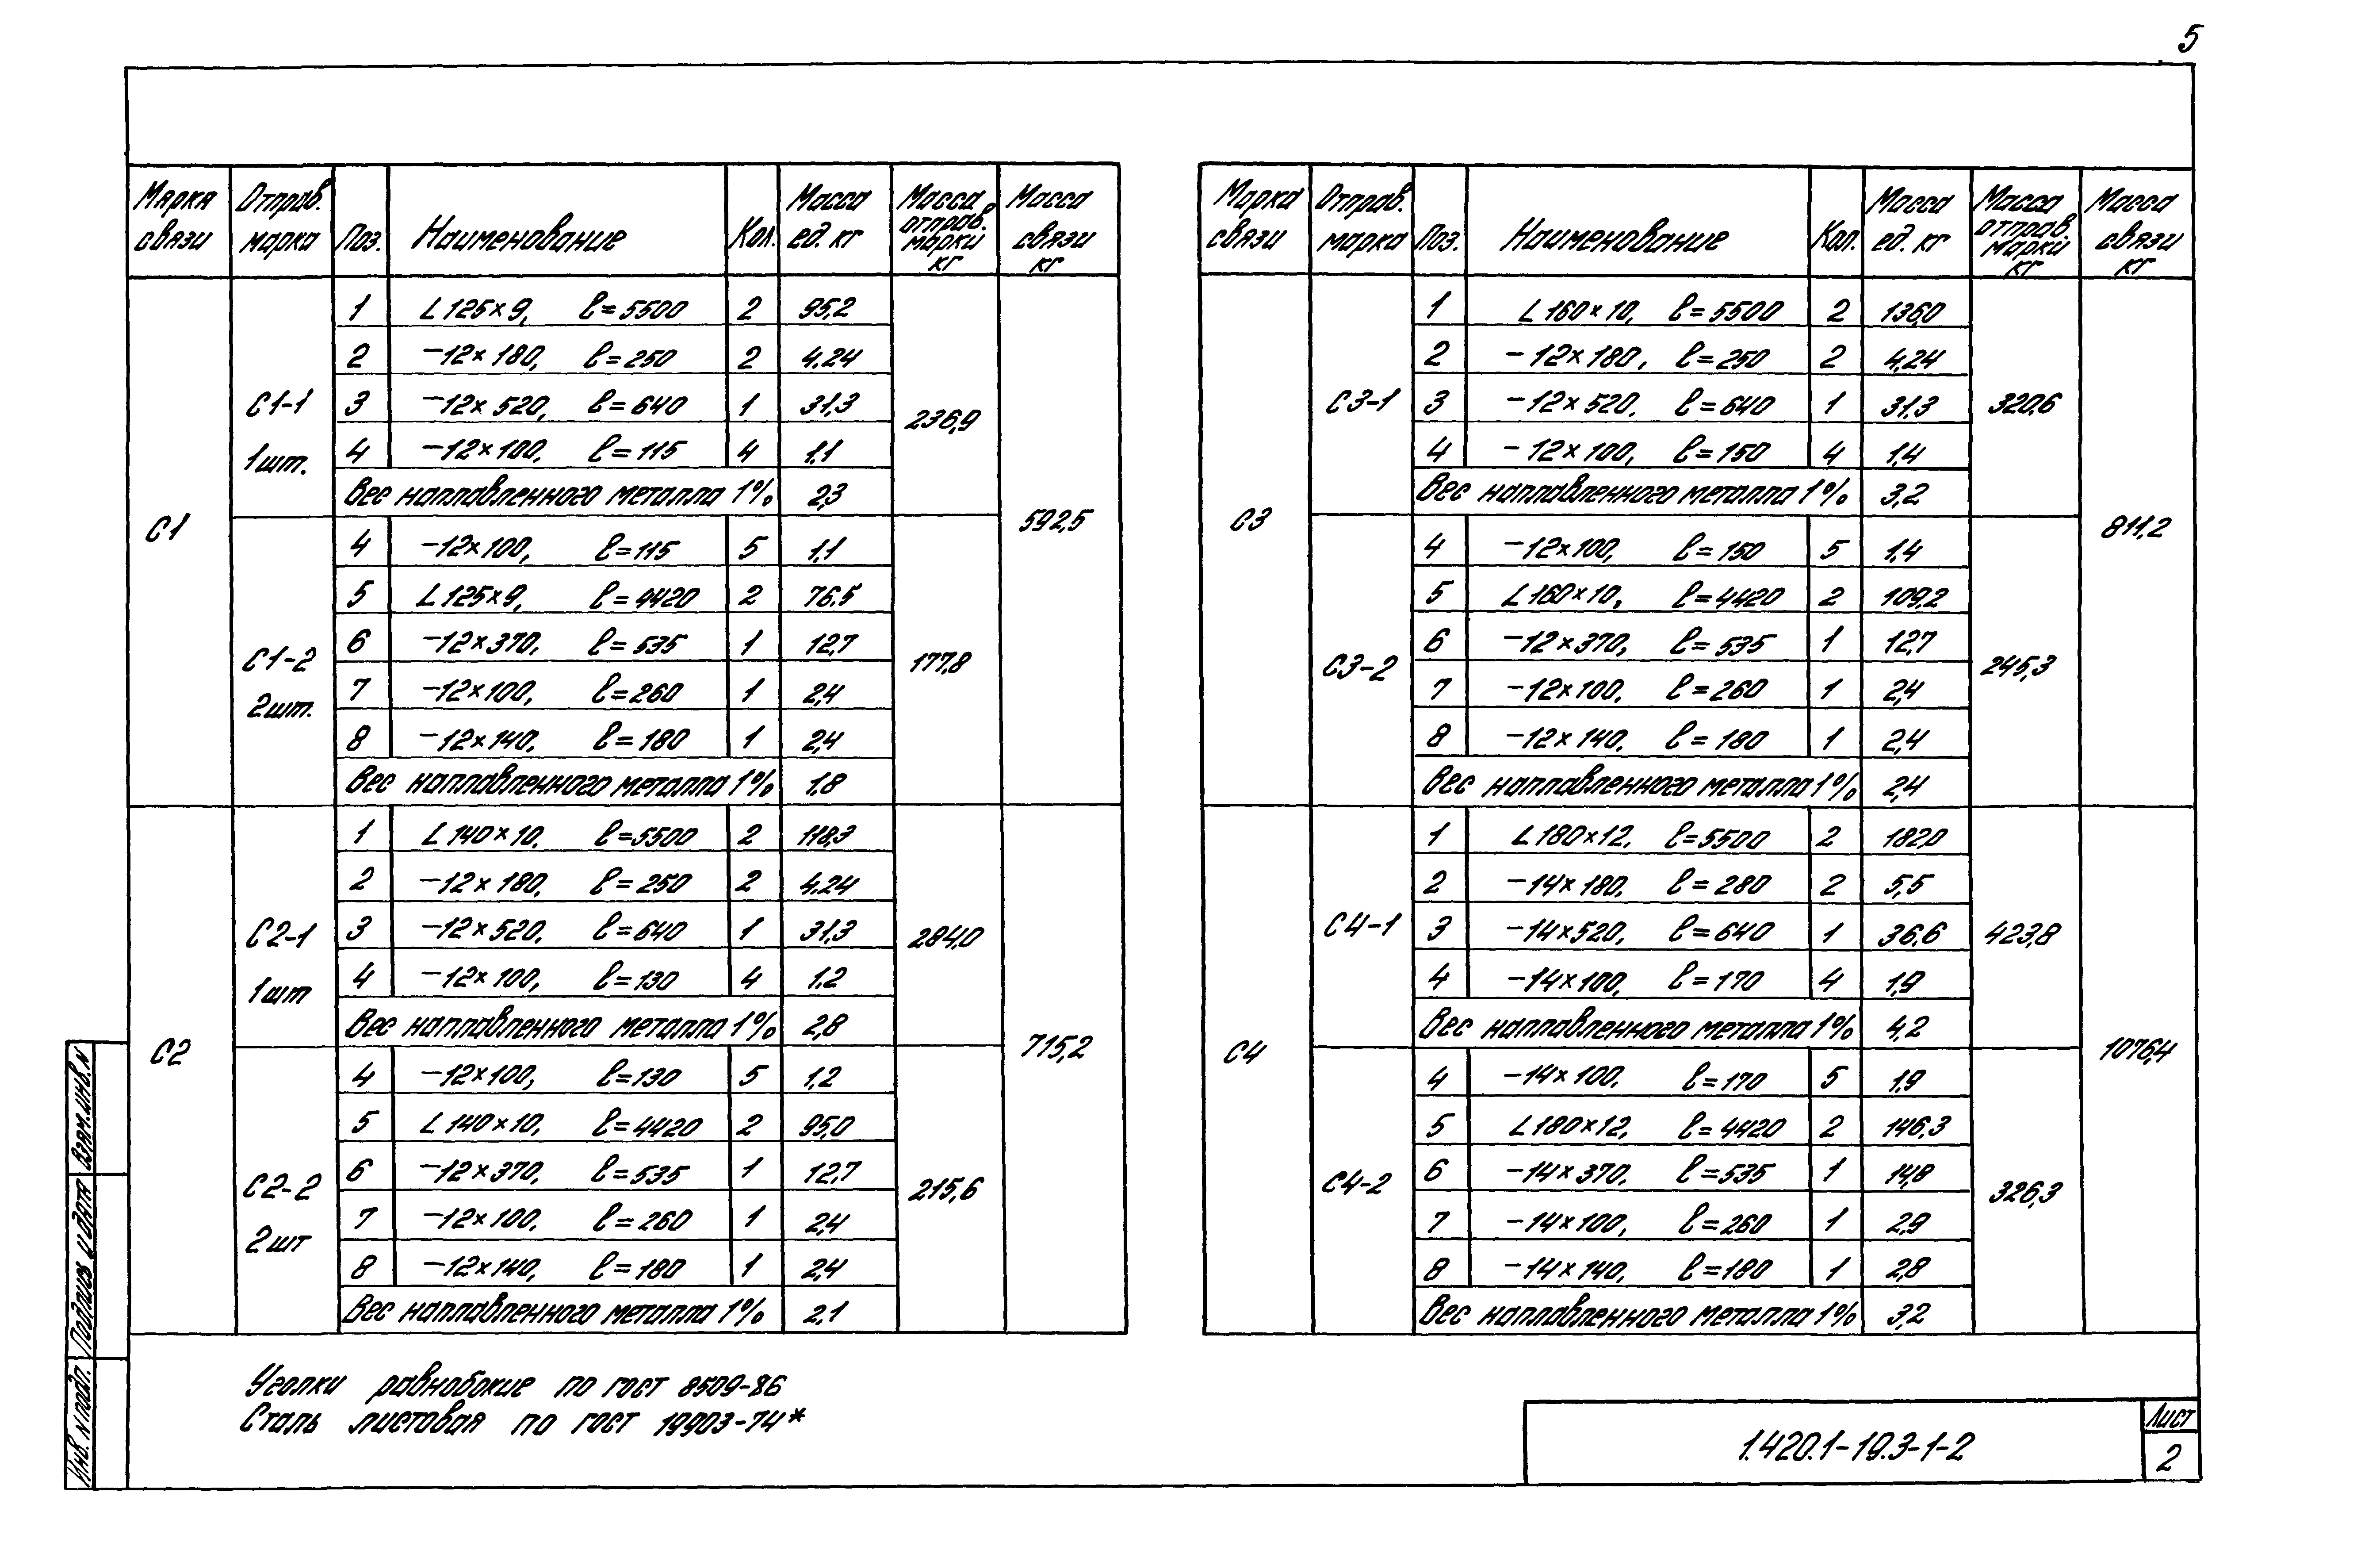 5
Марка связи | Отправ. марка | Поз. | Наименование | Кол. | Масса ед. кг | Масса отправ. марки кг | Масса связи кг
С1 | С1-1 1шт. | 1 | L 125×9, ℓ=5500 | 2 | 95,2 | 236,9 | 592,5
2 | -12×180, ℓ=250 | 2 | 4,24
3 | -12×520, ℓ=640 | 1 | 31,3
4 | -12×100, ℓ=115 | 4 | 1,1
Вес наплавленного металла 1% | 2,3
С1-2 2шт. | 4 | -12×100, ℓ=115 | 5 | 1,1 | 177,8
5 | L 125×9, ℓ=4420 | 2 | 76,5
6 | -12×370, ℓ=535 | 1 | 12,7
7 | -12×100, ℓ=260 | 1 | 2,4
8 | -12×140, ℓ=180 | 1 | 2,4
Вес наплавленного металла 1% | 1,8
С2 | С2-1 1шт | 1 | L 140×10, ℓ=5500 | 2 | 118,3 | 284,0 | 715,2
2 | -12×180, ℓ=250 | 2 | 4,24
3 | -12×520, ℓ=640 | 1 | 31,3
4 | -12×100, ℓ=130 | 4 | 1,2
Вес наплавленного металла 1% | 2,8
С2-2 2шт | 4 | -12×100, ℓ=130 | 5 | 1,2 | 215,6
5 | L 140×10, ℓ=4420 | 2 | 95,0
6 | -12×370, ℓ=535 | 1 | 12,7
7 | -12×100, ℓ=260 | 1 | 2,4
8 | -12×140, ℓ=180 | 1 | 2,4
Вес наплавленного металла 1% | 2,1
Марка связи | Отправ. марка | Поз. | Наименование | Кол. | Масса ед. кг | Масса отправ. марки кг | Масса связи кг
С3 | С3-1 | 1 | L 160×10, ℓ=5500 | 2 | 136,0 | 320,6 | 811,2
2 | -12×180, ℓ=250 | 2 | 4,24
3 | -12×520, ℓ=640 | 1 | 31,3
4 | -12×100, ℓ=150 | 4 | 1,4
Вес наплавленного металла 1% | 3,2
С3-2 | 4 | -12×100, ℓ=150 | 5 | 1,4 | 245,3
5 | L 160×10, ℓ=4420 | 2 | 109,2
6 | -12×370, ℓ=535 | 1 | 12,7
7 | -12×100, ℓ=260 | 1 | 2,4
8 | -12×140, ℓ=180 | 1 | 2,4
Вес наплавленного металла 1% | 2,4
С4 | С4-1 | 1 | L 180×12, ℓ=5500 | 2 | 182,0 | 423,8 | 1076,4
2 | -14×180, ℓ=280 | 2 | 5,5
3 | -14×520, ℓ=640 | 1 | 36,6
4 | -14×100, ℓ=170 | 4 | 1,9
Вес наплавленного металла 1% | 4,2
С4-2 | 4 | -14×100, ℓ=170 | 5 | 1,9 | 326,3
5 | L 180×12, ℓ=4420 | 2 | 146,3
6 | -14×370, ℓ=535 | 1 | 14,8
7 | -14×100, ℓ=260 | 1 | 2,9
8 | -14×140, ℓ=180 | 1 | 2,8
Вес наплавленного металла 1% | 3,2
Уголки равнобокие по гост 8509-86
Сталь листовая по гост 19903-74*
1.420.1-19.3-1-2
Лист
2
Взам. инв. N
Подпись и дата
Инв. N подп.